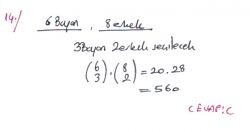 14./ 6 Bayan , 8 erkek
3 Bayan 2 erkek seçilecek
(6 3) . (8 2) = 20.28
= 560
CEVAP: C